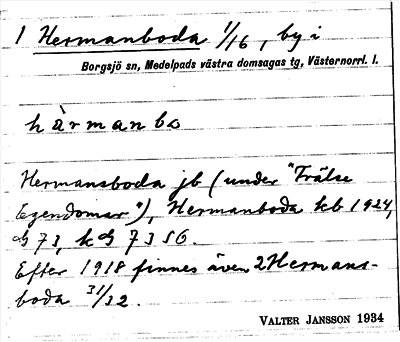 1 Hermanboda 1/16, by i
Borgsjö sn, Medelpads västra domsagas tg, Västernorrl. l.
hàrmanbo
Hermansboda jb (under "Frälse
Egendomar"), Hermanboda kb 1924,
G 73, k G 7356.
Efter 1918 finnes även 2 Hermans-
boda 31/32.
VALTER JANSSON 1934